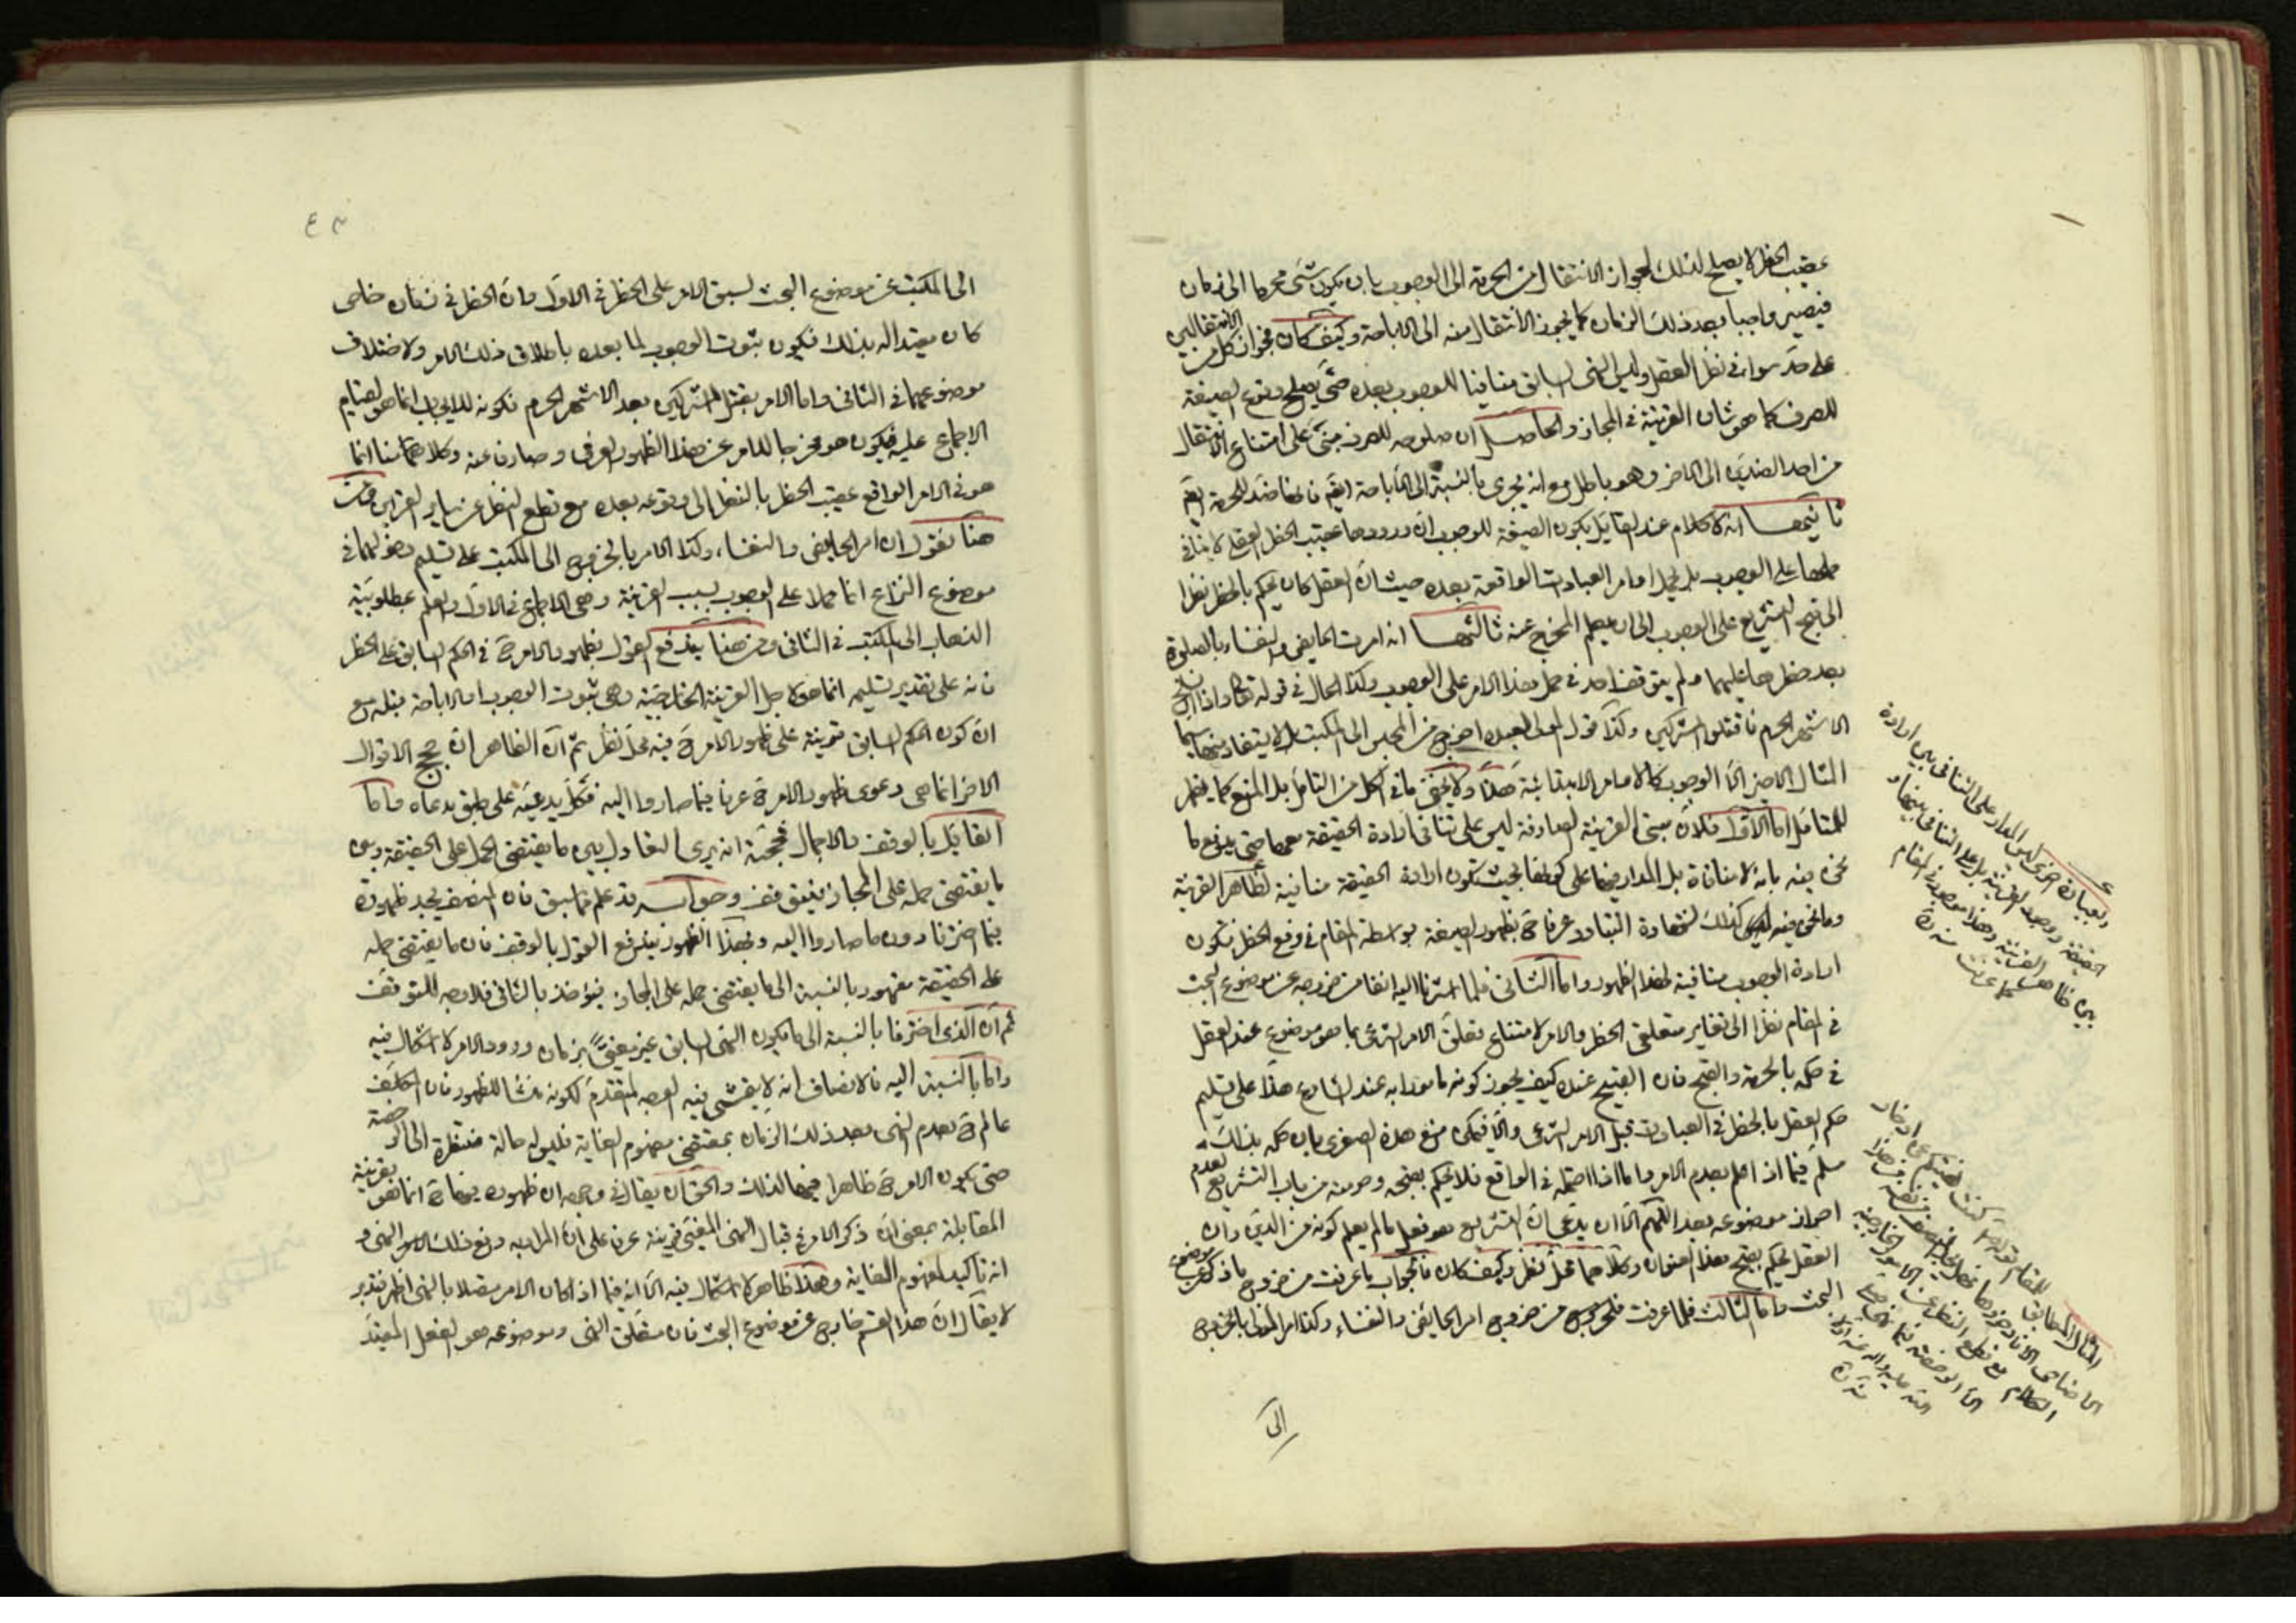 عقيب الحظر لا يصلح لذلك لجواز الانتقال من الحرمة الى الوجوب بان يكون شئ محرما الى زمان
فيصير واجبا بعد ذلك الزمان كما يجوز الانتقال منه الى الاباحة وكيف كان فجواز كل من الانتقالين
على حد سواء في نظر العقل وليس النهى السابق منافيا للوجوب بعده حتى يصلح وقوع الصيغة
للصرف كما هو شان القرينة في المجاز والحاصل ان صلوحه للصرف مبنى على امتناع الانتقال
من احد الضدين الى الاخر وهو باطل مع انه يجرى بالنسبة الى الاباحة ايضا فانها ضد للحرمة ايضا
ثانيهما انه لا كلام عند القايل بكون الصيغة للوجوب ان ورودها عقيب الحظر العقلى لا ينافى
حملها على الوجوب بل يحمل اوامر العبادات الواقعة بعده حيث ان العقل كان يحكم بالحظر نظرا
الى قبح التشريع على الوجوب الى ان يعلم المخرج عنه ثالثها انه امرت الحايض والنفساء بالصلوة
بعد حظرها عليهما ولم يتوقف احد في حمل هذا الامر على الوجوب وكذا الحال في قوله تعالى واذا انسلخ
الاشهر الحرم فاقتلوا المشركين وكذا قول المولى لعبده اخرج من المجلس الى المكتب لا يستفاد منها سيما
المثال الاخير الا الوجوب كالاوامر الابتدائية هذا ولا يخفى ما في الكل من التامل بل المنع كما يظهر
للمتامل اما الاول فلان مبنى القرينة الصارفة ليس على تنافى ارادة الحقيقة معها حتى يدفع ما
نحن فيه بانه لا منافاة بل المدار فيها على كونها بحيث تكون ارادة الحقيقة منافية لظاهر القرينة
وما نحن فيه ليس كذلك لشهادة التبادر عرفا بظهور الصيغة بواسطة المقام في رفع الحظر فتكون
ارادة الوجوب منافية لهذا الظهور واما الثانى فلما اشرنا اليه انفا من خروجه عن موضوع البحث
في المقام نظرا الى تغاير متعلقى الحظر والامر لامتناع تعلق الامر الشرعى بما هو موضوع عند العقل
في حكمه بالحرمة والقبح فان القبيح عنده كيف يجوز كونه مامورا به عند الشارع هذا على تسليم
حكم العقل بالحظر في العبادات قبل الامر الشرعى والا فيمكن منع هذه الصغرى بان حكمه بذلك
مسلم فيما اذا علم بعدم الامر واما اذا احتمله في الواقع فلا يحكم بقبحه وحرمته من باب التشريع لعدم
احراز موضوعه بعد اللهم الا ان يدعى ان التشريع هو فعل ما لم يعلم كونه من الدين وان
العقل يحكم بقبح هذا العنوان وكلاهما محل نظر وكيف كان فالجواب ما عرفت من خروج ما ذكر عن موضوع
البحث واما الثالث فلما عرفت من خروج امر الحائض والنفساء وكذا امر المولى بالخروج
الى
وبعبارة اخرى ليس المدار على التنافى بين ارادة
الحقيقة ووجود القرينة بل على التنافى بينها و
بين ظاهر القرينة وهذا موجود في المقام
كما عرفت منه
الى المكتب عن موضوع البحث لسبق الامر على الحظر في الاول وان الحظر في زمان خاص
كان مقيدا له بذلك فيكون ثبوت الوجوب لما بعده باطلاق ذلك الامر ولاختلاف
موضوعهما في الثانى واما الامر بقتل المشركين بعد الاشهر الحرم فكونه للايجاب انما هو لقيام
الاجماع عليه فيكون هو مخرجا للامر عن هذا الظهور العرفى وصارفا عنه وكلامنا انما
هو في الامر الواقع عقيب الحظر بالنظر الى وقوعه بعده مع قطع النظر عن ساير القراين ومن
هنا نقول ان امر الحايض والنفساء وكذا الامر بالخروج الى المكتب على تسليم دخولهما في
موضوع النزاع انما حملا على الوجوب بسبب القرينة وهى الاجماع في الاول والعلم بمطلوبية
الذهاب الى المكتب في الثانى ومن هنا يندفع القول بظهور الامر في الحكم السابق على الحظر
فانه على تقدير تسليمه انما هو لاجل القرينة الخارجية وهى ثبوت الوجوب او الاباحة قبله مع
ان كون الحكم السابق قرينة على ظهور الامر فيه محل نظر ثم ان الظاهر ان حجج الاقوال
الاخر انما هى دعوى ظهور الامر عرفا فيما صاروا اليه فكل يدعيه على طبق مدعاه واما
القايل بالوقف والاجمال فحجته انه يرى التعادل بين ما يقتضى الحمل على الحقيقة وبين
ما يقتضى حمله على المجاز فيتوقف وجوابه قد علم مما سبق فان المنصف يجد ظهوره
فيما اخترنا دون ما صاروا اليه وبهذا الظهور يندفع القول بالوقف فان ما يقتضى حمله
على الحقيقة مقهور بالنسبة الى ما يقتضى حمله على المجاز فيؤخذ بالثانى فلا وجه للتوقف
ثم ان الذى اخترنا بالنسبة الى ما يكون النهى السابق غير مغيى بزمان ورود الامر لا اشكال فيه
واما بالنسبة اليه فالانصاف انه لا يتمشى فيه الوجه المتقدم لكونه منشا للظهور فان المكلف
عالم بعدم النهى بعد ذلك الزمان بمقتضى مفهوم الغاية فليس له حالة منتظرة الى الرخصة
حتى يكون الامر ظاهرا فيها لذلك والحق ان يقال في وجه ان ظهوره فيها انما هو بقرينة
المقابلة بمعنى ان ذكر الامر في قبال النهى المغيى قرينة عرفا على ان المراد به رفع ذلك النهى و
انه تاكيد لمفهوم الغاية وهذا ظاهر لا اشكال فيه الا انه فيما اذا كان الامر متصلا بالنهى اظهر فتدبر
لا يقال ان هذا القسم خارج عن موضوع البحث فان متعلق النهى وموضوعه هو الفعل المقيد